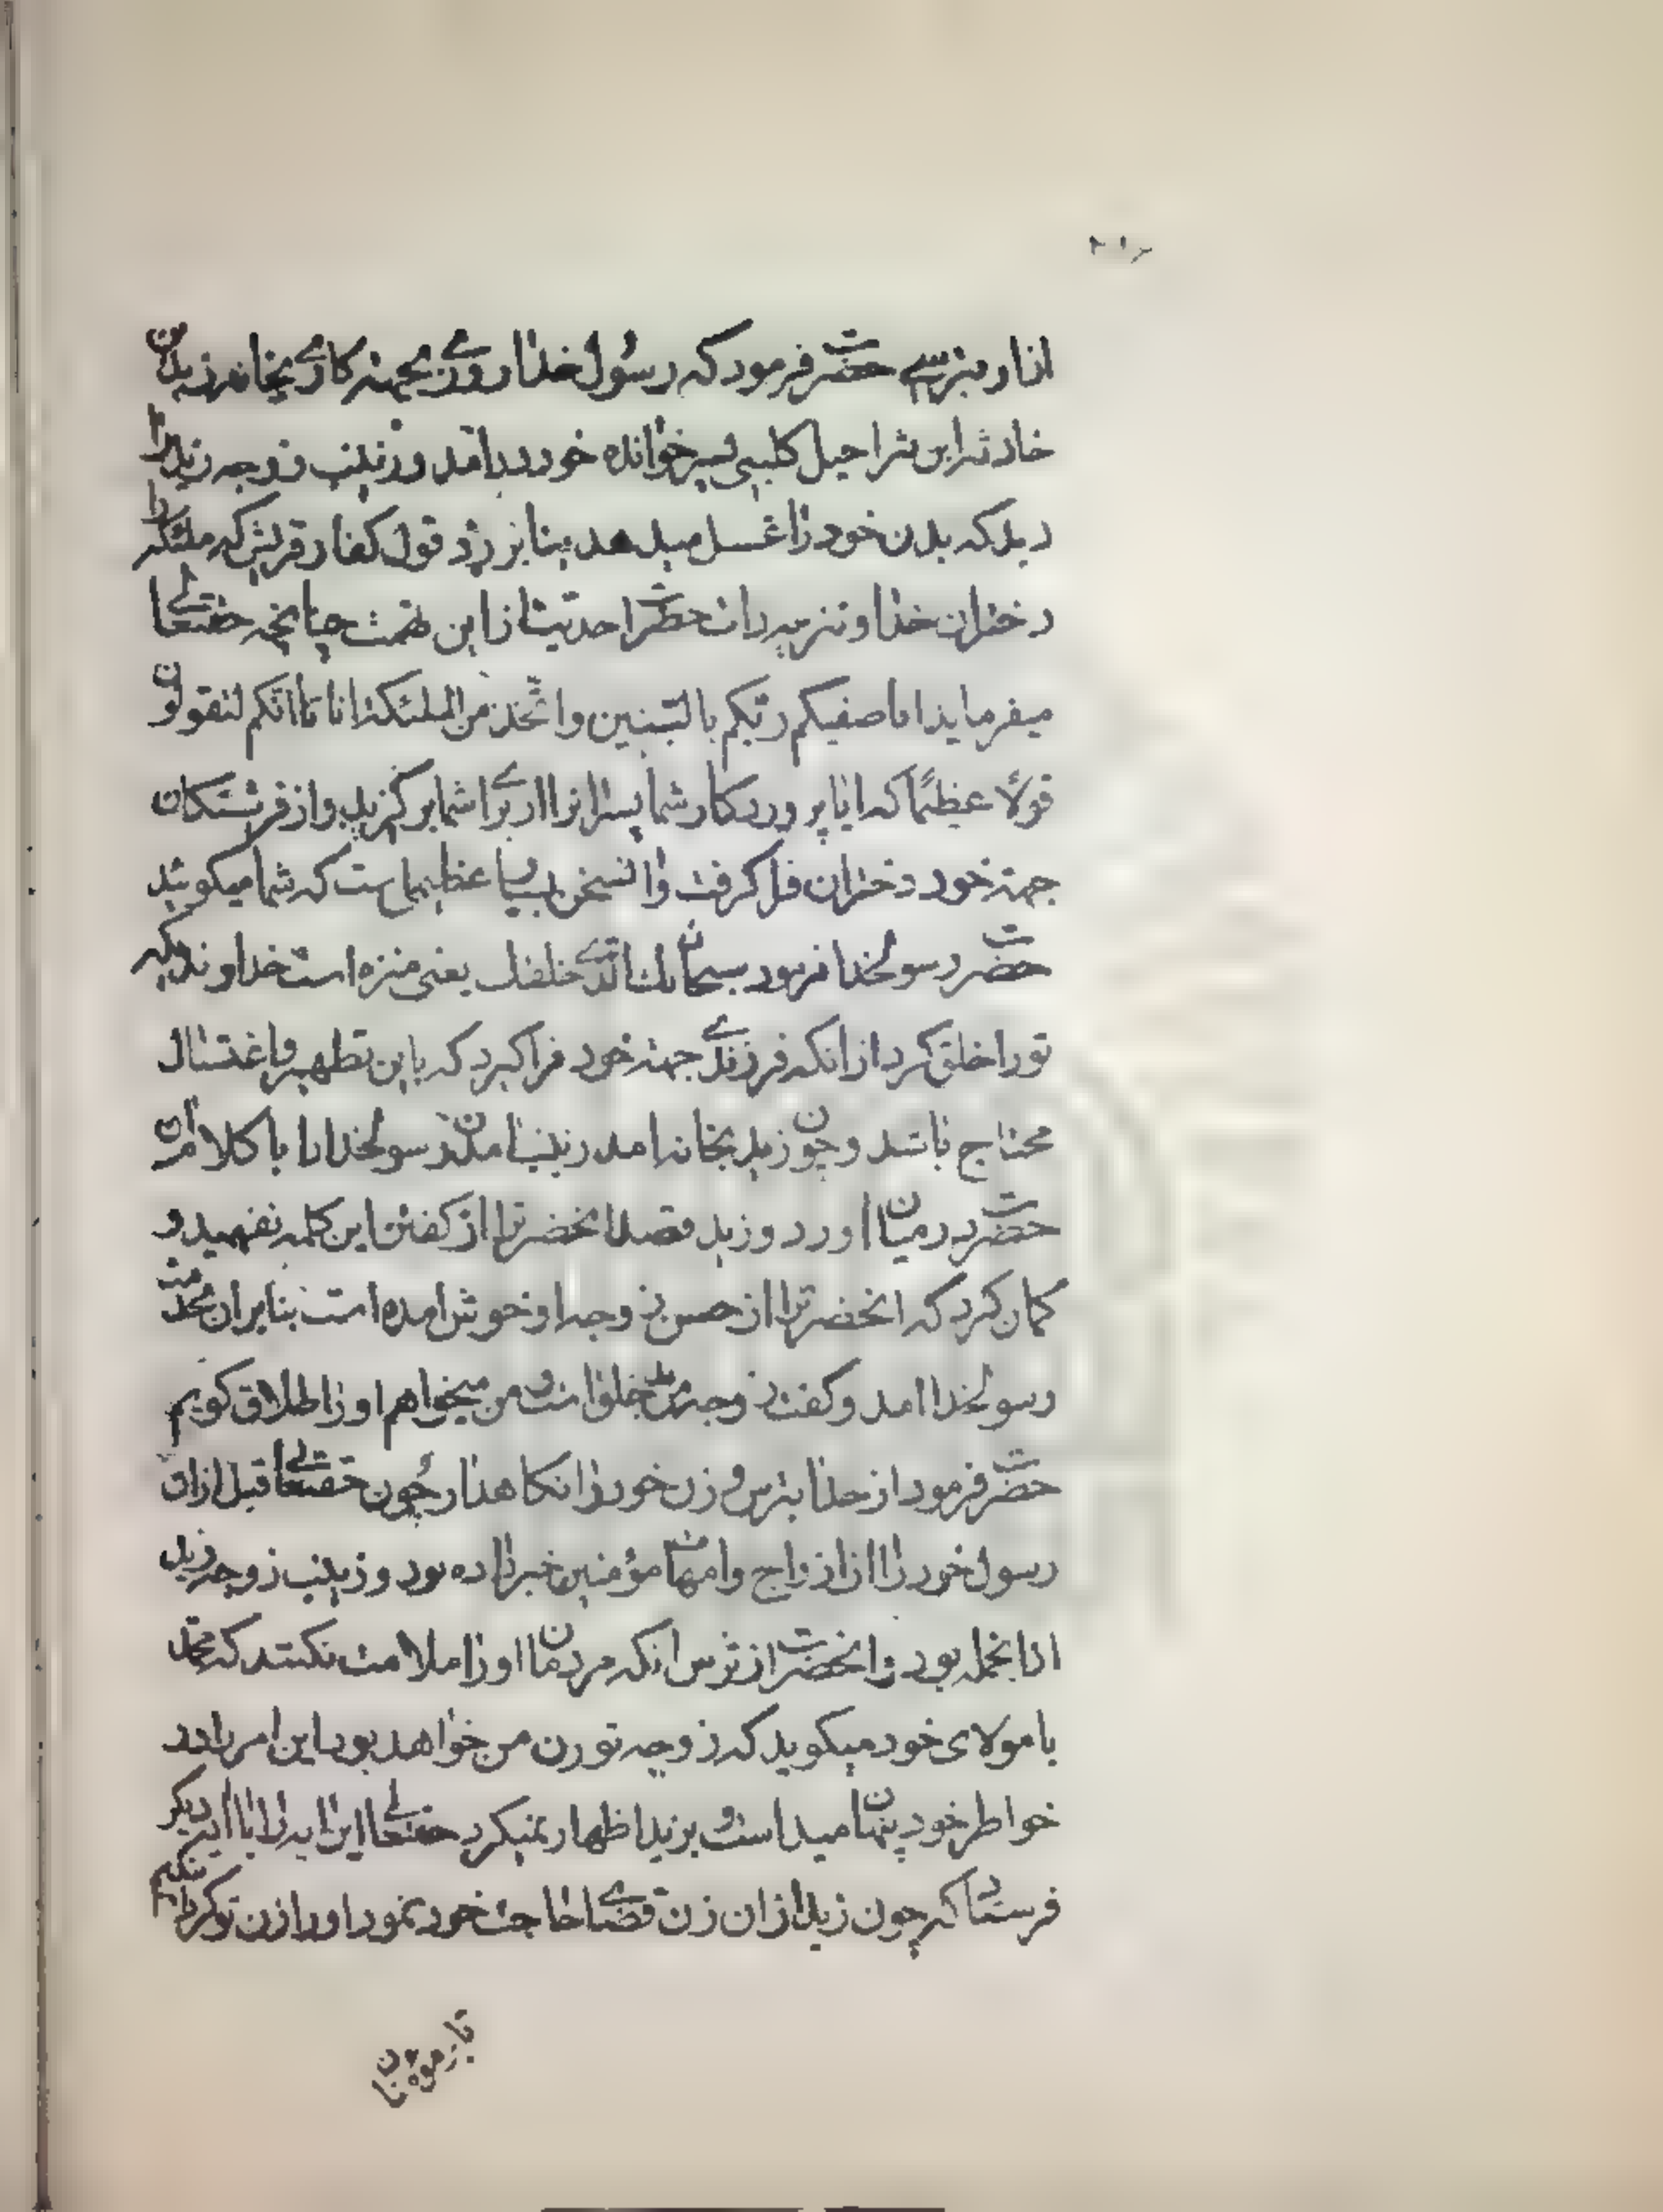 ۲۱۶
از او میترسے حضرت فرمود که رسول خدا روزے بجهة کارے بخانه زید بن
حارثه ابن شراحیل کلبی پسر خوانده خود درآمد و زینب زوجه زید را
دید که بدن خود را غسل میدهد بنابر رد قول کفار قریش که ملئکه را
دختران خدا و تنزیه ذات حضرت احدیت از این تهمت چنانچه حقتعالے
میفرماید افاصفیکم ربکم بالبنین واتخذ من الملئکة اناثا انکم لتقولون
قولاً عظیماً که ایا پروردکار شما پسرانرا از براے شما برکزید و از فرشتکان
جهة خود دختران فرا کرفت و این سخن بسیار عظیم است که شما میکوئید
حضرت رسولخدا فرمود سبحان الذے خلقک یعنی منزه است خداوندیکه
تو را خلق کرد از انکه فرزندے جهة خود فرا کیرد که باین تطهیر و اغتسال
محتاج باشد و چون زید بخانه امد زینب امدن رسولخدا را با کلام ان
حضرت در میان اورد و زید قصد انحضرترا از کفتن این کلمه نفهمید و
کمان کرد که انحضرترا از حسن زوجه او خوش امده است بنابران بخدمت
رسولخدا امد و کفت زوجه من بدخلق است و من میخواهم او را طلاق کویم
حضرت فرمود از خدا بترس و زن خود را نکاهدار چون حقتعالے قبل ازان
رسول خود را از ازواج و امهات مؤمنین خبر داده بود و زینب زوجه زید
ازانجمله بود و انحضرت از ترس انکه مردمان او را ملامت نکنند که محمد
با مولای خود میکوید که زوجه تو زن من خواهد بود این امر را در
خواطر خود پنهان میداشت و بزید اظهار نمیکرد حقتعالے این ایه را با ایه دیکر
فرستاد که چون زید ازان زن قضاے حاجت خود نمود او را زن تو کردانیدیم
تا بر مومنان